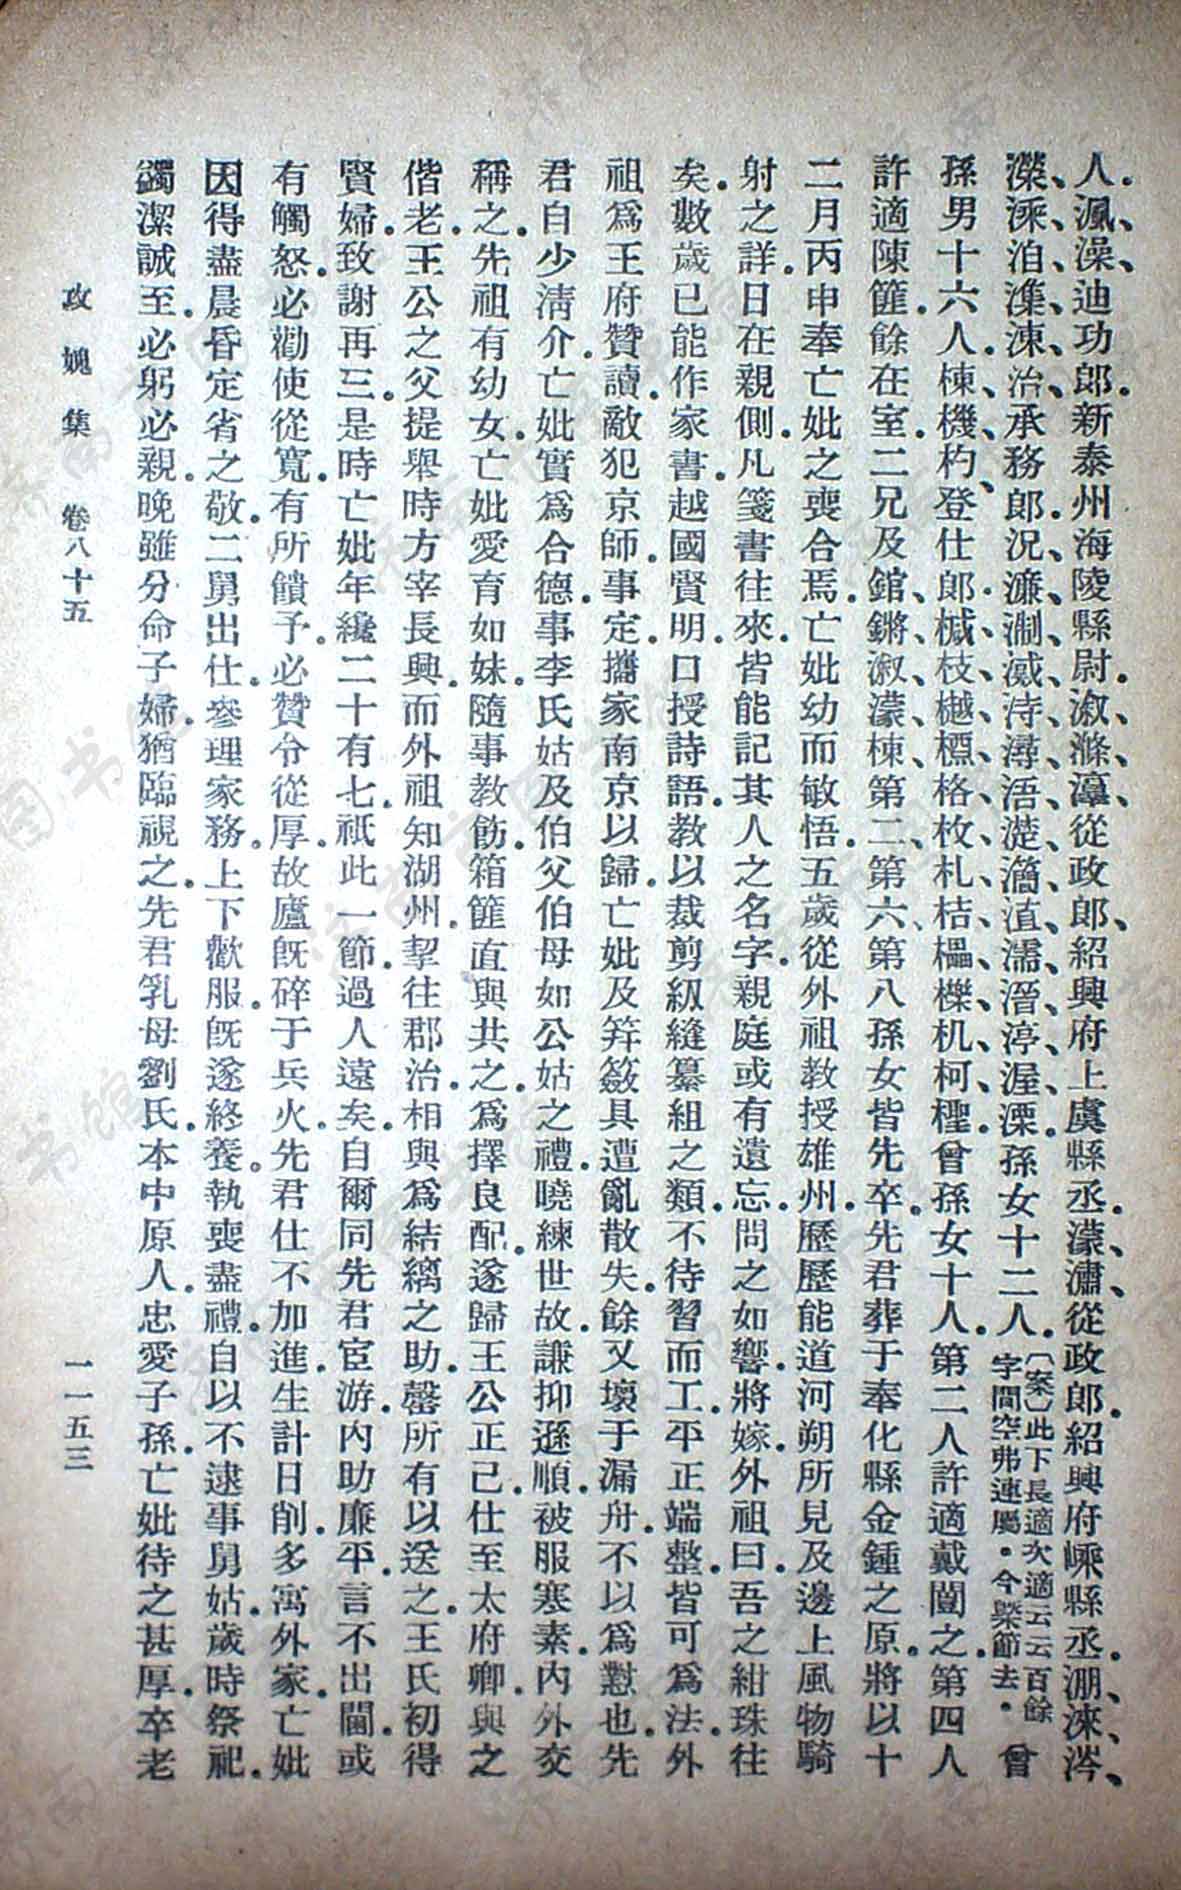 人。渢、澡、迪功郎。新泰州海陵縣尉。淑、滌、瀛、從政郎、紹興府上虞縣丞。濛、潚、從政郎。紹興府嵊縣丞。淜、淶、涔、
濼、溗、洎、潗、涷、治、承務郎。況、濂、淛、滅、洔、潯、浯、濋、㵎、湽、濡、溍、渟、渥、溧。孫女十二人。〔案〕此下長適次適云云百餘字間空弗連屬。今槩節去。曾
孫男十六人。棟、機、杓、登仕郎。棫、枝、樾、橝、格、枚、札、桔、櫑、櫟、机、柯、檉。曾孫女十人。第二人許適戴闓之。第四人
許適陳篚。餘在室。二兄及錧、鏘、淑、濛、棟、第二、第六、第八孫女皆先卒。先君葬于奉化縣金鍾之原。將以十
二月丙申奉亡妣之喪合焉。亡妣幼而敏悟。五歲從外祖敎授雄州。歷歷能道河朔所見及邊上風物騎
射之詳。日在親側。凡箋書往來。皆能記其人之名字。親庭或有遺忘。問之如響。將嫁。外祖曰。吾之紺珠往
矣。數歲已能作家書。越國賢明。口授詩語。敎以裁剪紉縫纂組之類。不待習而工。平正端整。皆可爲法。外
祖爲王府贊讀。敵犯京師。事定。攜家南京以歸。亡妣及筓。簽具遭亂散失。餘又壞于漏舟。不以爲懟也。先
君自少淸介。亡妣實爲合德。事李氏姑及伯父伯母如公姑之禮。曉練世故。謙抑遜順。被服寒素。內外交
稱之。先祖有幼女。亡妣愛育如妹。隨事敎飭。箱篚直與共之。爲擇良配。遂歸王公正己。仕至太府卿。與之
偕老。王公之父提舉時方宰長興。而外祖知湖州。挈往郡治。相與爲結縭之助。罄所有以送之。王氏初得
賢婦。致謝再三。是時亡妣年纔二十有七。祇此一節。過人遠矣。自爾同先君宦游。內助廉平。言不出閫。或
有觸怒。必勸使從寬。有所饋予。必贊令從厚。故廬旣碎于兵火。先君仕不加進。生計日削。多寓外家。亡妣
因得盡晨昏定省之敬。二舅出仕。參理家務。上下歡服。旣遂終養。執喪盡禮。自以不逮事舅姑。歲時祭祀。
蠲潔誠至。必躬必親。晚雖分命子婦。猶臨視之。先君乳母劉氏。本中原人。忠愛子孫。亡妣待之甚厚。卒老
攻媿集 卷八十五 一一五三